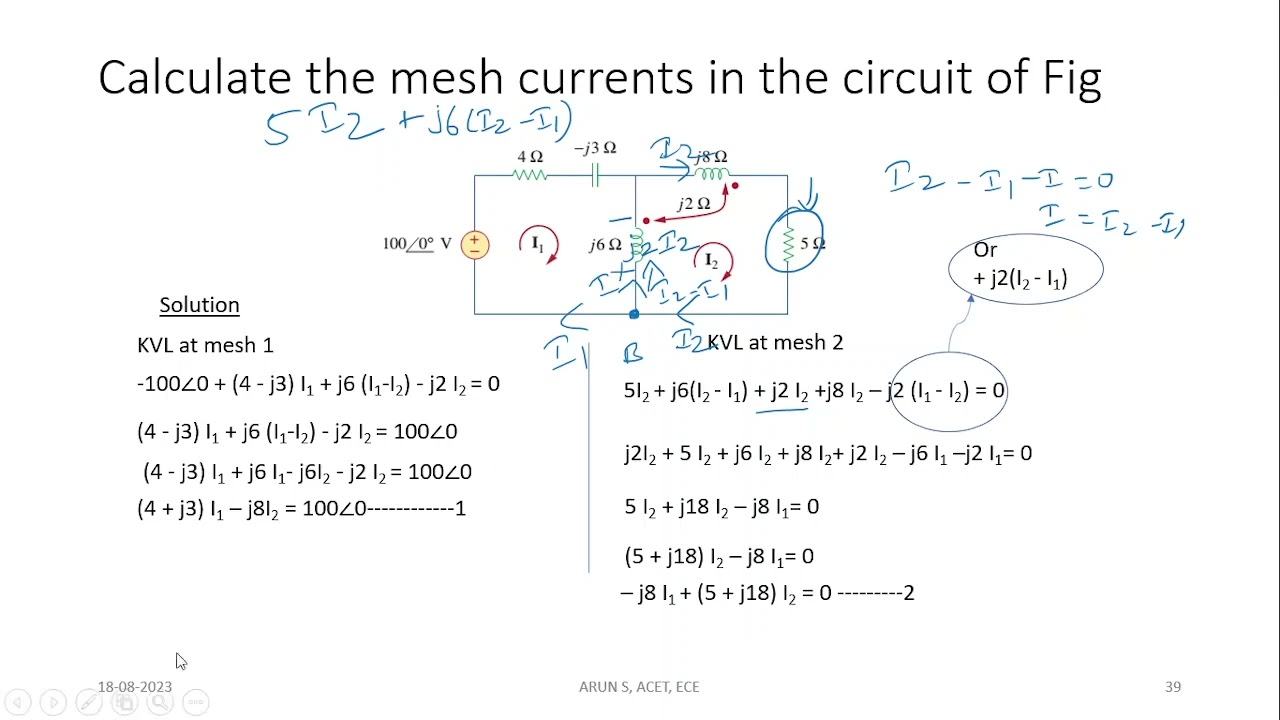 Calculate the mesh currents in the circuit of Fig
5 I2 + j6(I2 - I1)
4 Ω
-j3 Ω
I2
j8 Ω
I2 - I1 - I = 0
I = I2 - I1
100∠0° V
I1
j6 Ω
j2 Ω
j2 I2
I2
5 Ω
–
+
I
I
I2 - I1
I1
B
I2
Or
+ j2(I2 - I1)
Solution
KVL at mesh 1
-100∠0 + (4 - j3) I1 + j6 (I1-I2) - j2 I2 = 0
(4 - j3) I1 + j6 (I1-I2) - j2 I2 = 100∠0
(4 - j3) I1 + j6 I1- j6I2 - j2 I2 = 100∠0
(4 + j3) I1 – j8I2 = 100∠0------------1
KVL at mesh 2
5I2 + j6(I2 - I1) + j2 I2 +j8 I2 – j2 (I1 - I2) = 0
j2I2 + 5 I2 + j6 I2 + j8 I2+ j2 I2 – j6 I1 –j2 I1= 0
5 I2 + j18 I2 – j8 I1= 0
(5 + j18) I2 – j8 I1= 0
– j8 I1 + (5 + j18) I2 = 0 ---------2
18-08-2023
ARUN S, ACET, ECE
39